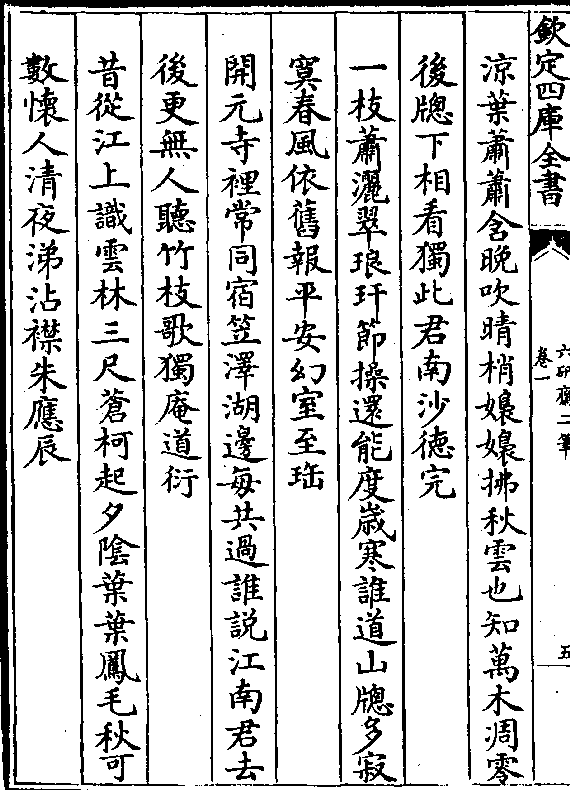 欽定四庫全書
六研齋二筆
卷一
五
涼葉蕭蕭含晚吹晴梢嫋嫋拂秋雲也知萬木凋零
後牕下相看獨此君南沙徳完
一枝蕭灑翠琅玕節操還能度歲寒誰道山牕多寂
寞春風依舊報平安幻室至珤
開元寺裡常同宿笠澤湖邊每共過誰説江南君去
後更無人聽竹枝歌獨庵道衍
昔從江上識雲林三尺蒼柯起夕陰葉葉鳳毛秋可
數懷人清夜涕沾襟朱應辰